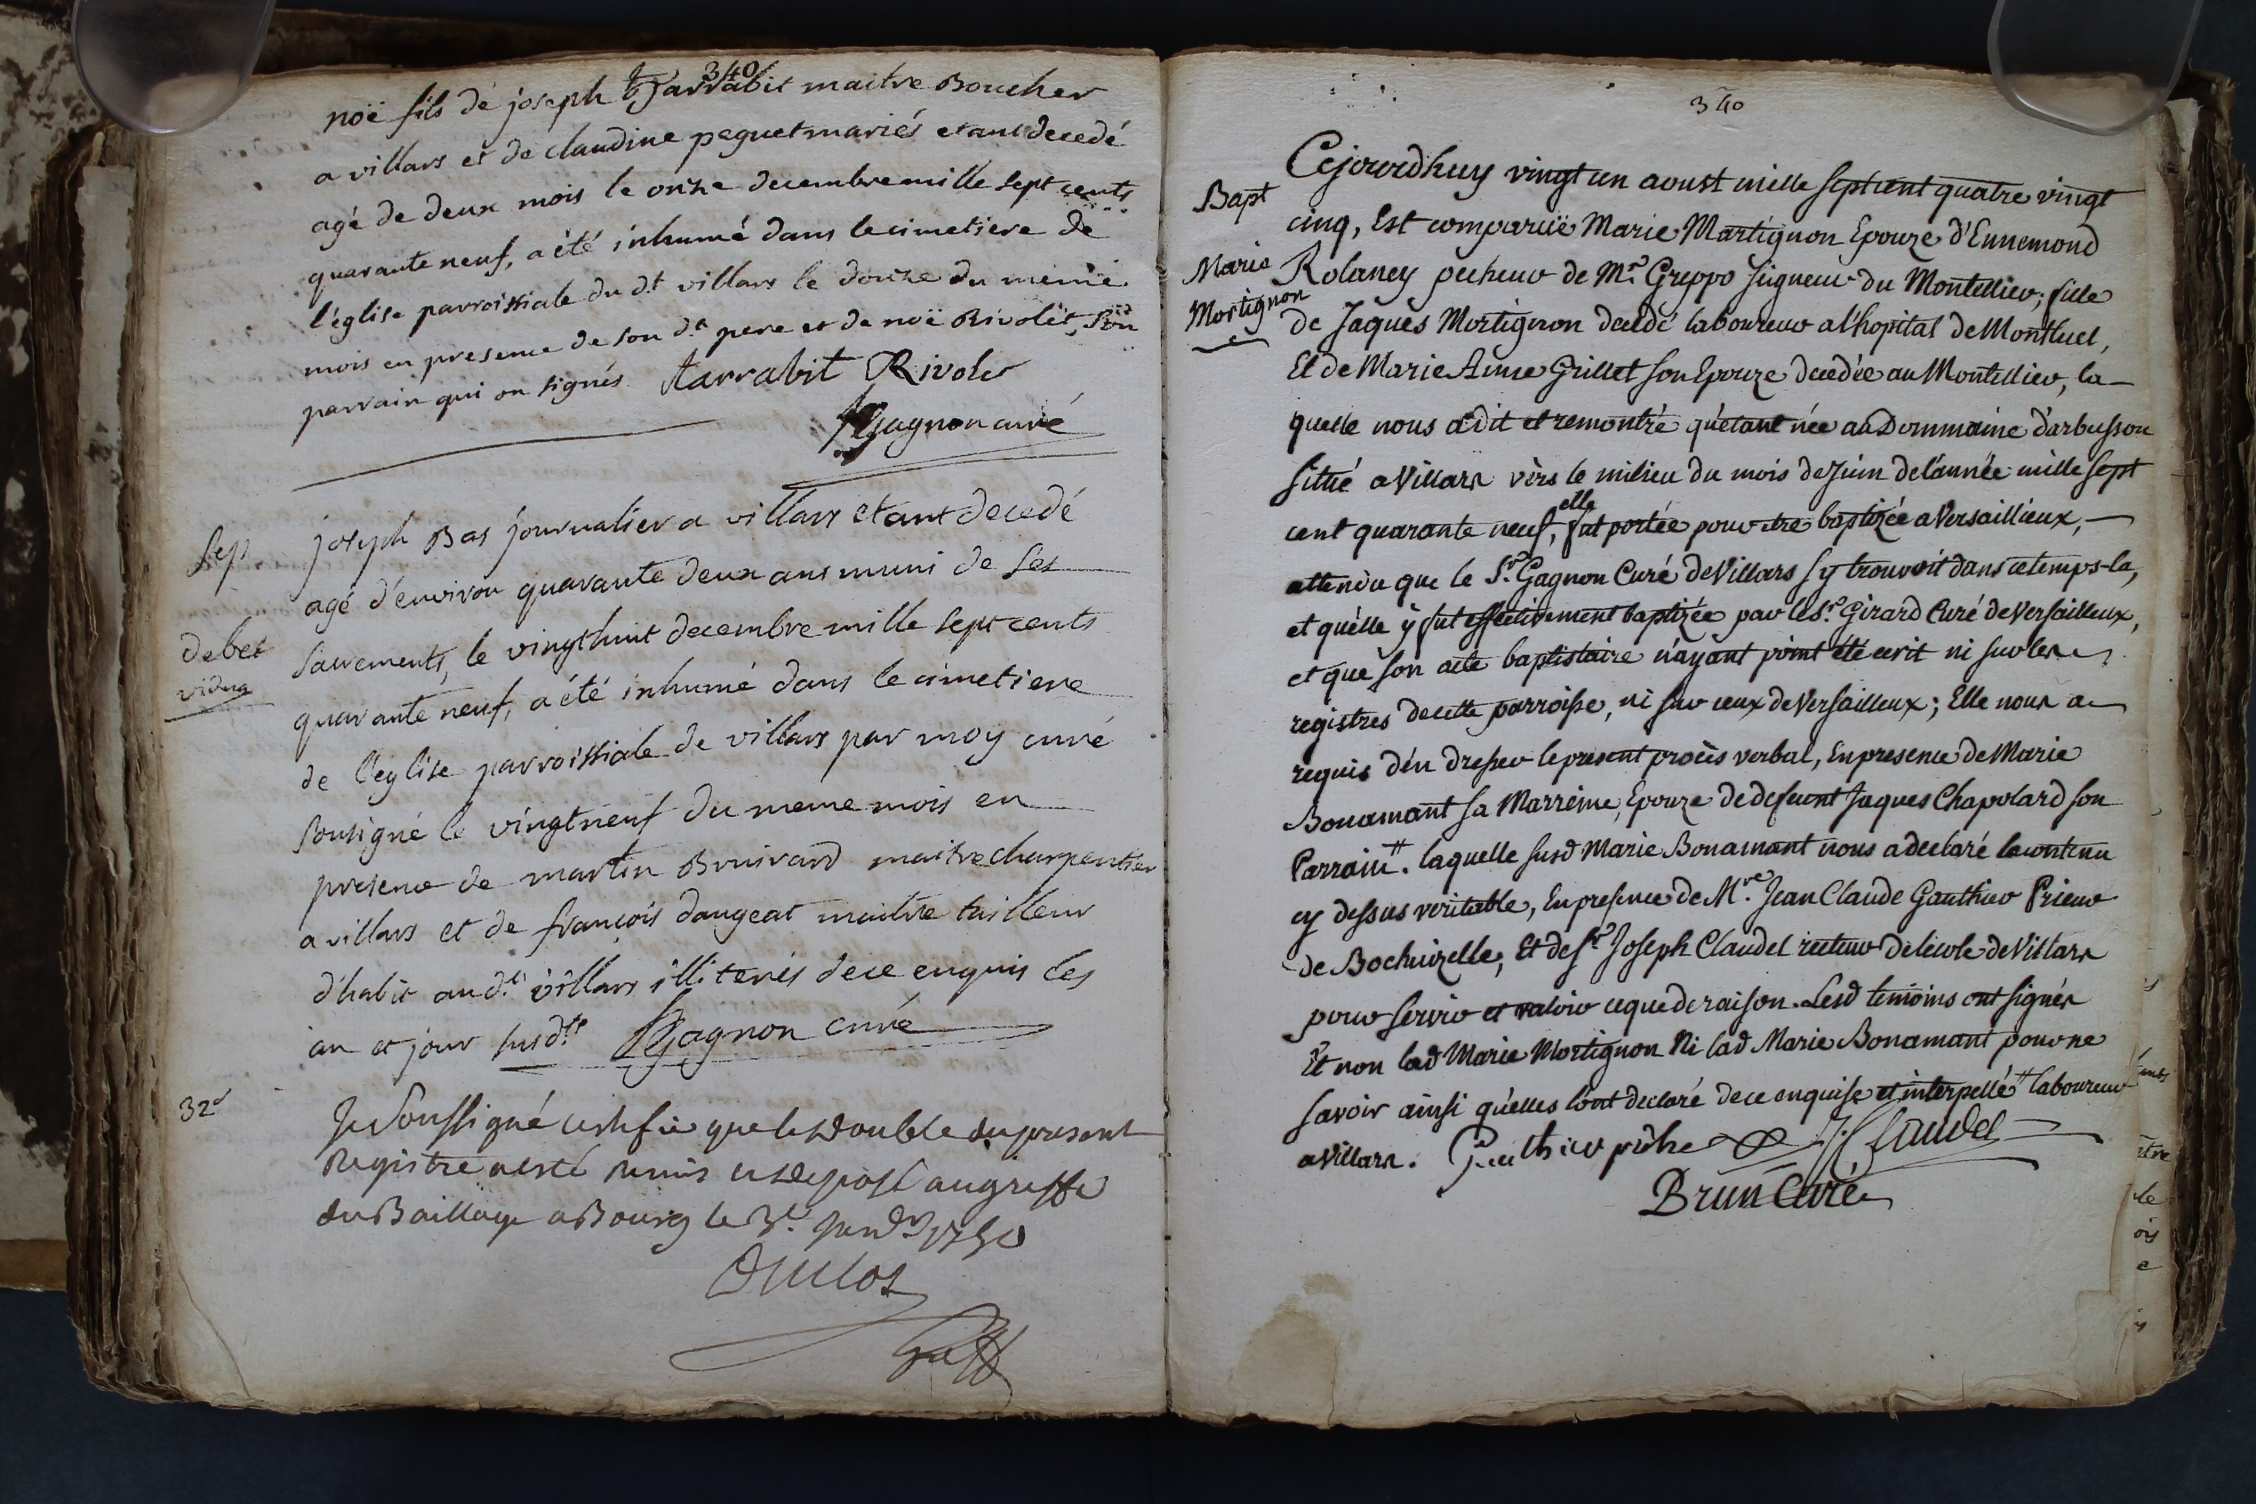 340
noë fils de joseph tarrabit maitre Boucher
a villars et de claudine peguet mariés etant decedé
agé de deux mois le onze decembre mille sept cents
quarante neuf, a été inhumé dans le cimetiere de
l'église parroissiale du d.t villars le douze du meme
mois en presence de son d.t pere et de noë Rivolet, son
parrain qui on signés tarrabit Rivolet
Gagnon curé
Sep.
debet
vidua
joseph Bas journalier a villars etant decedé
agé d'environ quarante deux ans muni de ses
sacrements, le vingthuit decembre mille sept cents
quarante neuf, a été inhumé dans le cimetiere
de l'eglise parroissiale de villars par moy curé
sousigné le vingtneuf du meme mois en
presence de martin Bruivard maitre charpentier
a villars et de françois daugeat maitre tailleur
d'habit aud.t villars illiterés de ce enquis les
an et jour susd.ts Gagnon curé
32e
Je Soussigné certifie que le double du present
Registre a esté remis et deposé au greffe
du Baillage a Bourg le 3.e Janv.r 1750
Duclos
Greff
340
Bapt
Marie
Mortignon
Cejourdhuy vingt un aoust mille sept cent quatre vingt
cinq, Est comparuë Marie Martignon Epouze d'Ennemond
Rolaney pecheur de Mr. Greppo seigneur du Montellier; fille
de Jaques Mortignon decedé laboureur a l'hopital de Montluel,
Et de Marie Anne Grillet son Epouze decedée au Montellier, la-
quelle nous a dit et remontré qu'etant née au Dommaine d'arbusson
situé a Villars vers le milieu du mois de Juin de l'année mille sept
cent quarante neuf, elle fut portée pour etre baptizée a Versaillieux,
attendu que le Sr. Gagnon Curé de Villars s'y trouvoit dans ce temps-la,
et qu'elle y fut effectivement baptizée par le Sr. Girard Curé de Versailleux,
et que son acte baptistaire n'ayant point été ecrit ni sur les
registres de cette parroisse, ni sur ceux de Versailleux; Elle nous a
requis d'en dresser le present procès verbal, En presence de Marie
Bonamant sa Marreine, Epouze de defeunt Jaques Chapolard son
Parrain #. laquelle susd Marie Bonamant nous a declaré le contenu
cy dessus veritable, En presence de M.re Jean Claude Gauthier Prieur
de Bochuizelle, Et de Sr. Joseph Claudel recteur de l'ecole de Villars
pour servir et valoir ce que de raison. Lesd temoins ont signés
Et non lad Marie Mortignon Ni lad Marie Bonamant pour ne
savoir ainsi qu'elles l'ont declaré de ce enquise et interpellé # laboureur
a Villars. Gauthier pretre J Claudel
Brun Curé